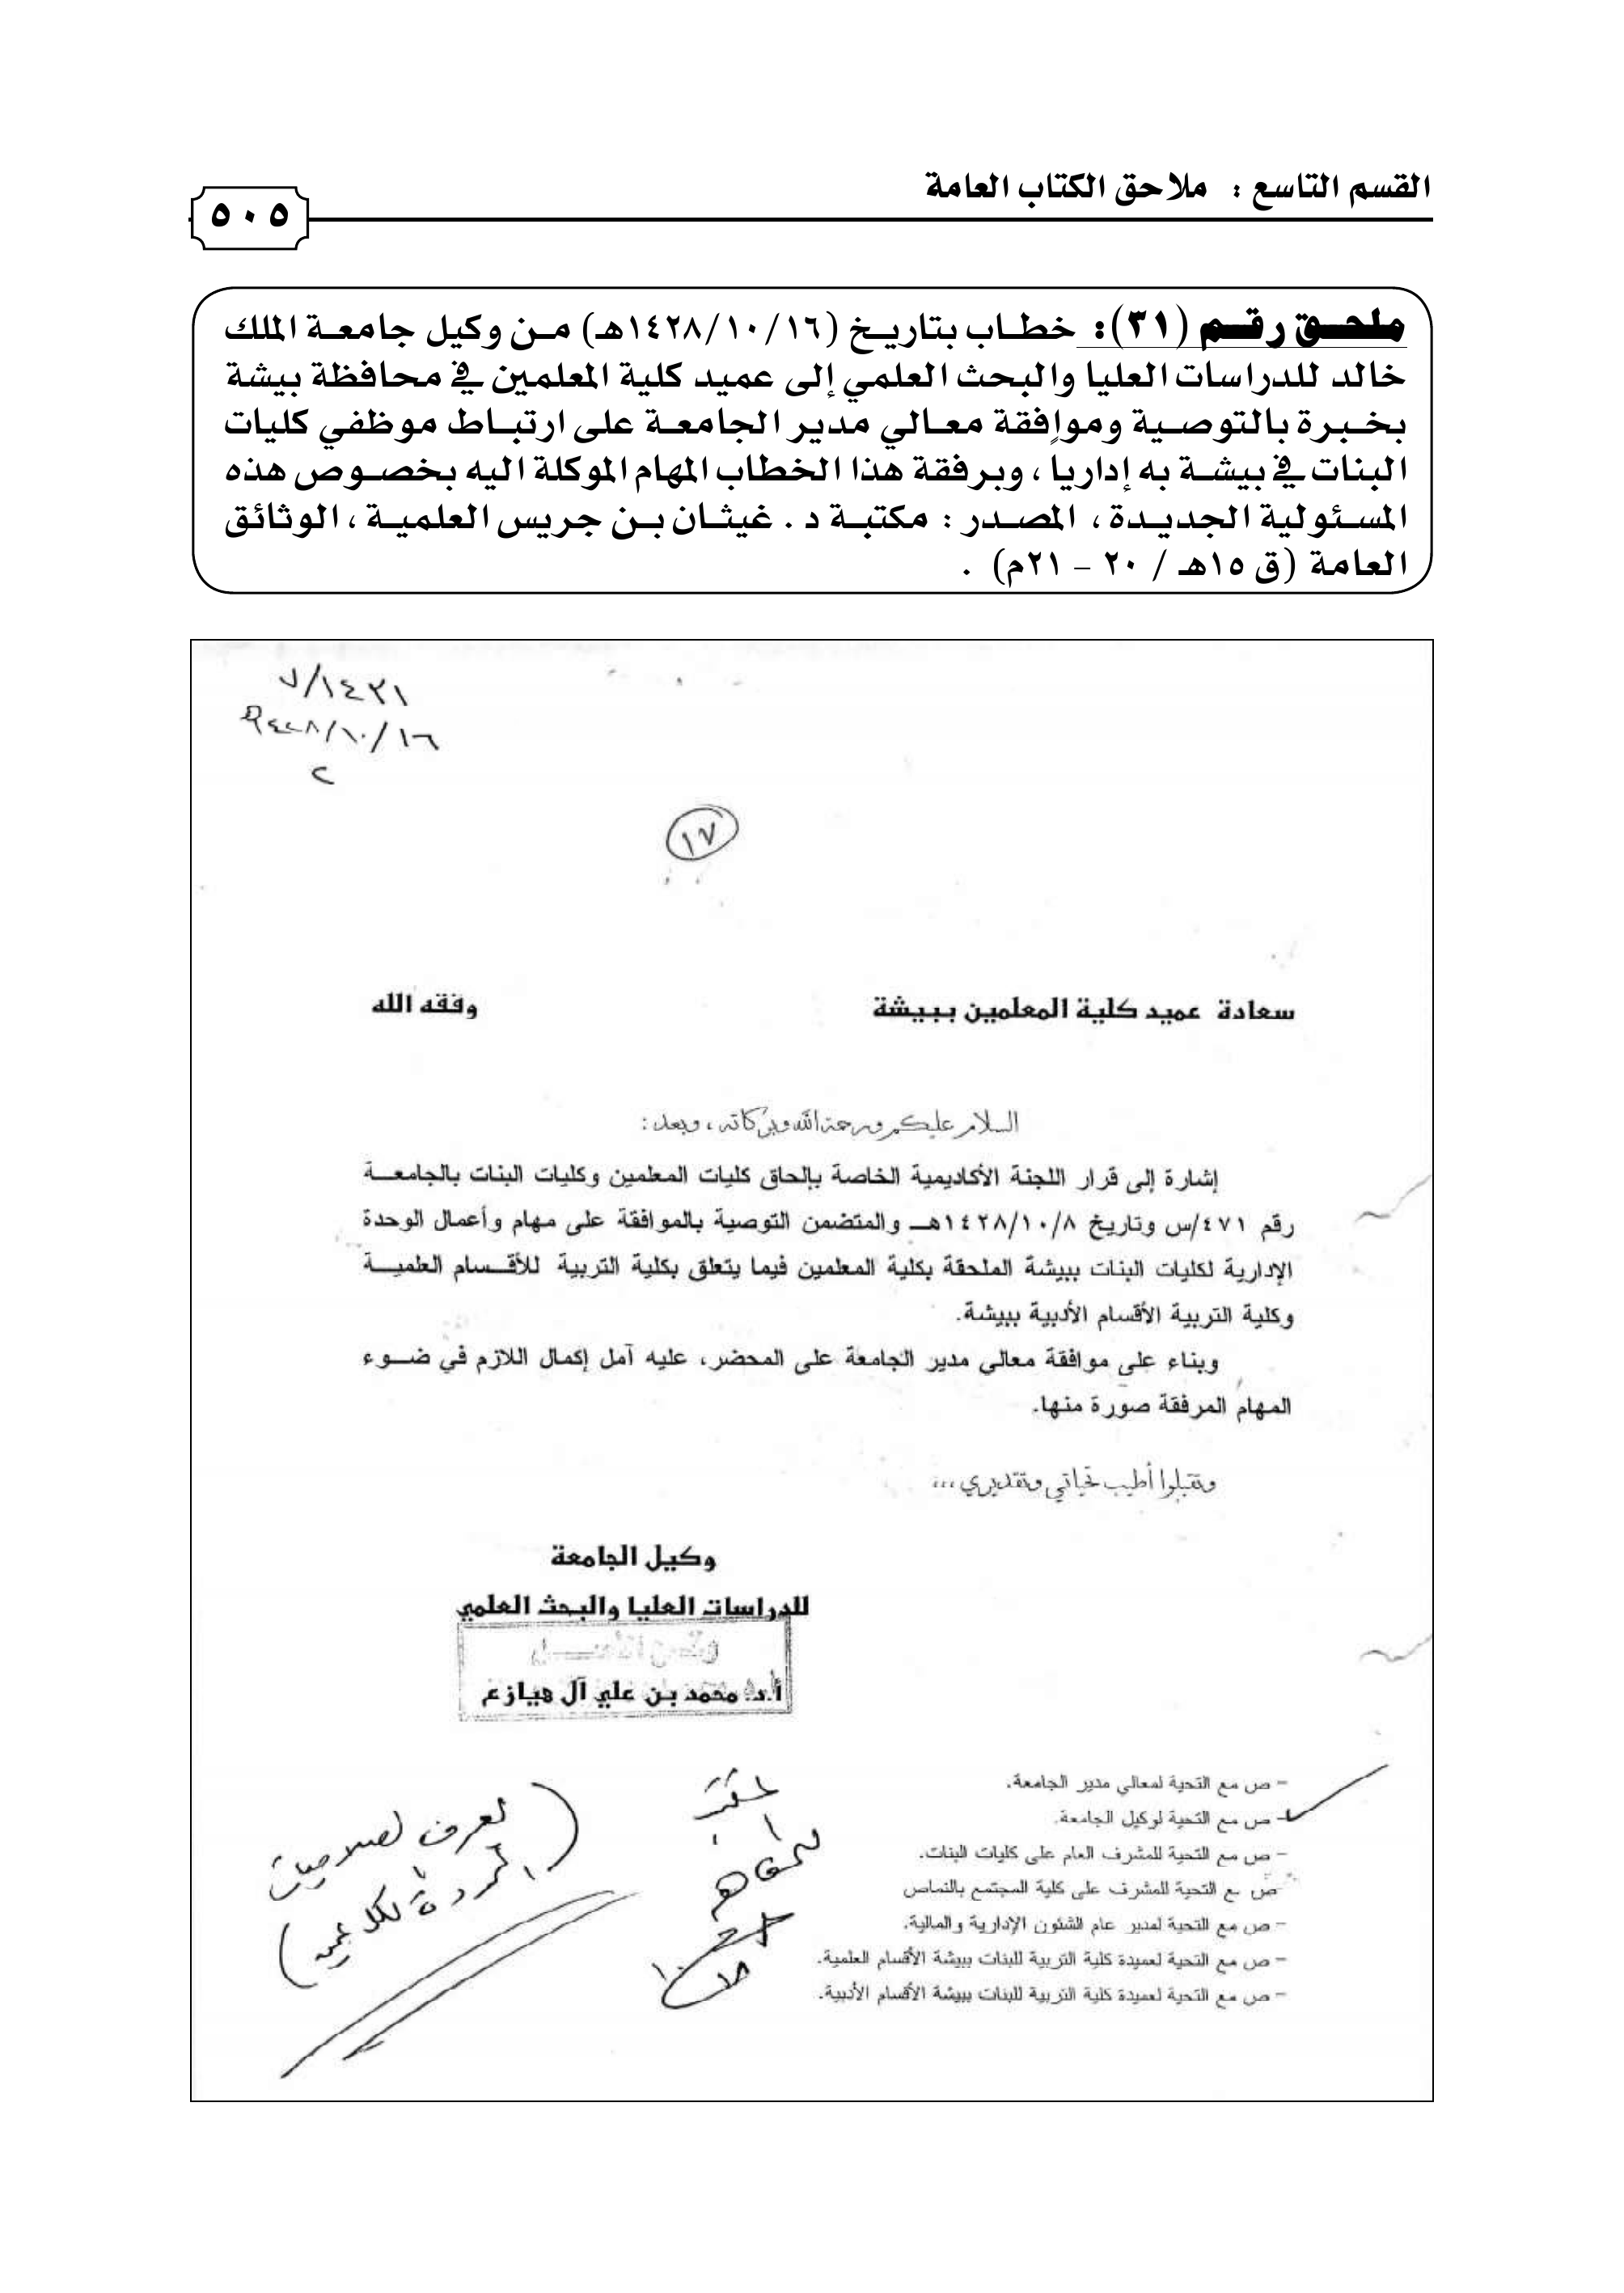 القسم التاسع : ملاحق الكتاب العامة
٥٠٥
ملحـق رقـم (٣١): خطـاب بتاريـخ (١٤٢٨/١٠/١٦هـ) مـن وكيل جامعـة الملك
خالد للدراسات العليا والبحث العلمي إلى عميد كلية المعلمين في محافظة بيشة
بخـبرة بالتوصـية وموافقة معـالي مدير الجامعـة على ارتبـاط موظفي كليات
البنات في بيشـة به إدارياً ، وبرفقة هذا الخطاب المهام الموكلة اليه بخصـوص هذه
المسـئولية الجديـدة ، المصـدر : مكتبـة د . غيثـان بـن جريس العلميـة ، الوثائق
العامة (ق ١٥هـ / ٢٠ – ٢١م) .
١٤٢٨/١٠/١٦
٢
١٧
سعادة عميد كلية المعلمين ببيشة
وفقه الله
السلام عليكم ورحمة الله وبركاته ، وبعد :
إشارة إلى قرار اللجنة الأكاديمية الخاصة بإلحاق كليات المعلمين وكليات البنات بالجامعـــة
رقم ٤٧١/س وتاريخ ١٤٢٨/١٠/٨هــ والمتضمن التوصية بالموافقة على مهام وأعمال الوحدة
الإدارية لكليات البنات ببيشة الملحقة بكلية المعلمين فيما يتعلق بكلية التربية للأقـسام العلميـــة
وكلية التربية الأقسام الأدبية ببيشة.
وبناء على موافقة معالي مدير الجامعة على المحضر، عليه آمل إكمال اللازم في ضـــوء
المهام المرفقة صورة منها.
وتقبلوا أطيب تحياتي وتقديري ...
وكيل الجامعة
للدراسات العليا والبحث العلمي
أ.د. محمد بن علي آل هيازع
- ص مع التحية لمعالي مدير الجامعة.
- ص مع التحية لوكيل الجامعة.
- ص مع التحية للمشرف العام على كليات البنات.
- ص مع التحية للمشرف على كلية المجتمع بالنماص
- ص مع التحية لمدير عام الشئون الإدارية والمالية.
- ص مع التحية لعميدة كلية التربية للبنات ببيشة الأقسام العلمية.
- ص مع التحية لعميدة كلية التربية للبنات ببيشة الأقسام الأدبية.